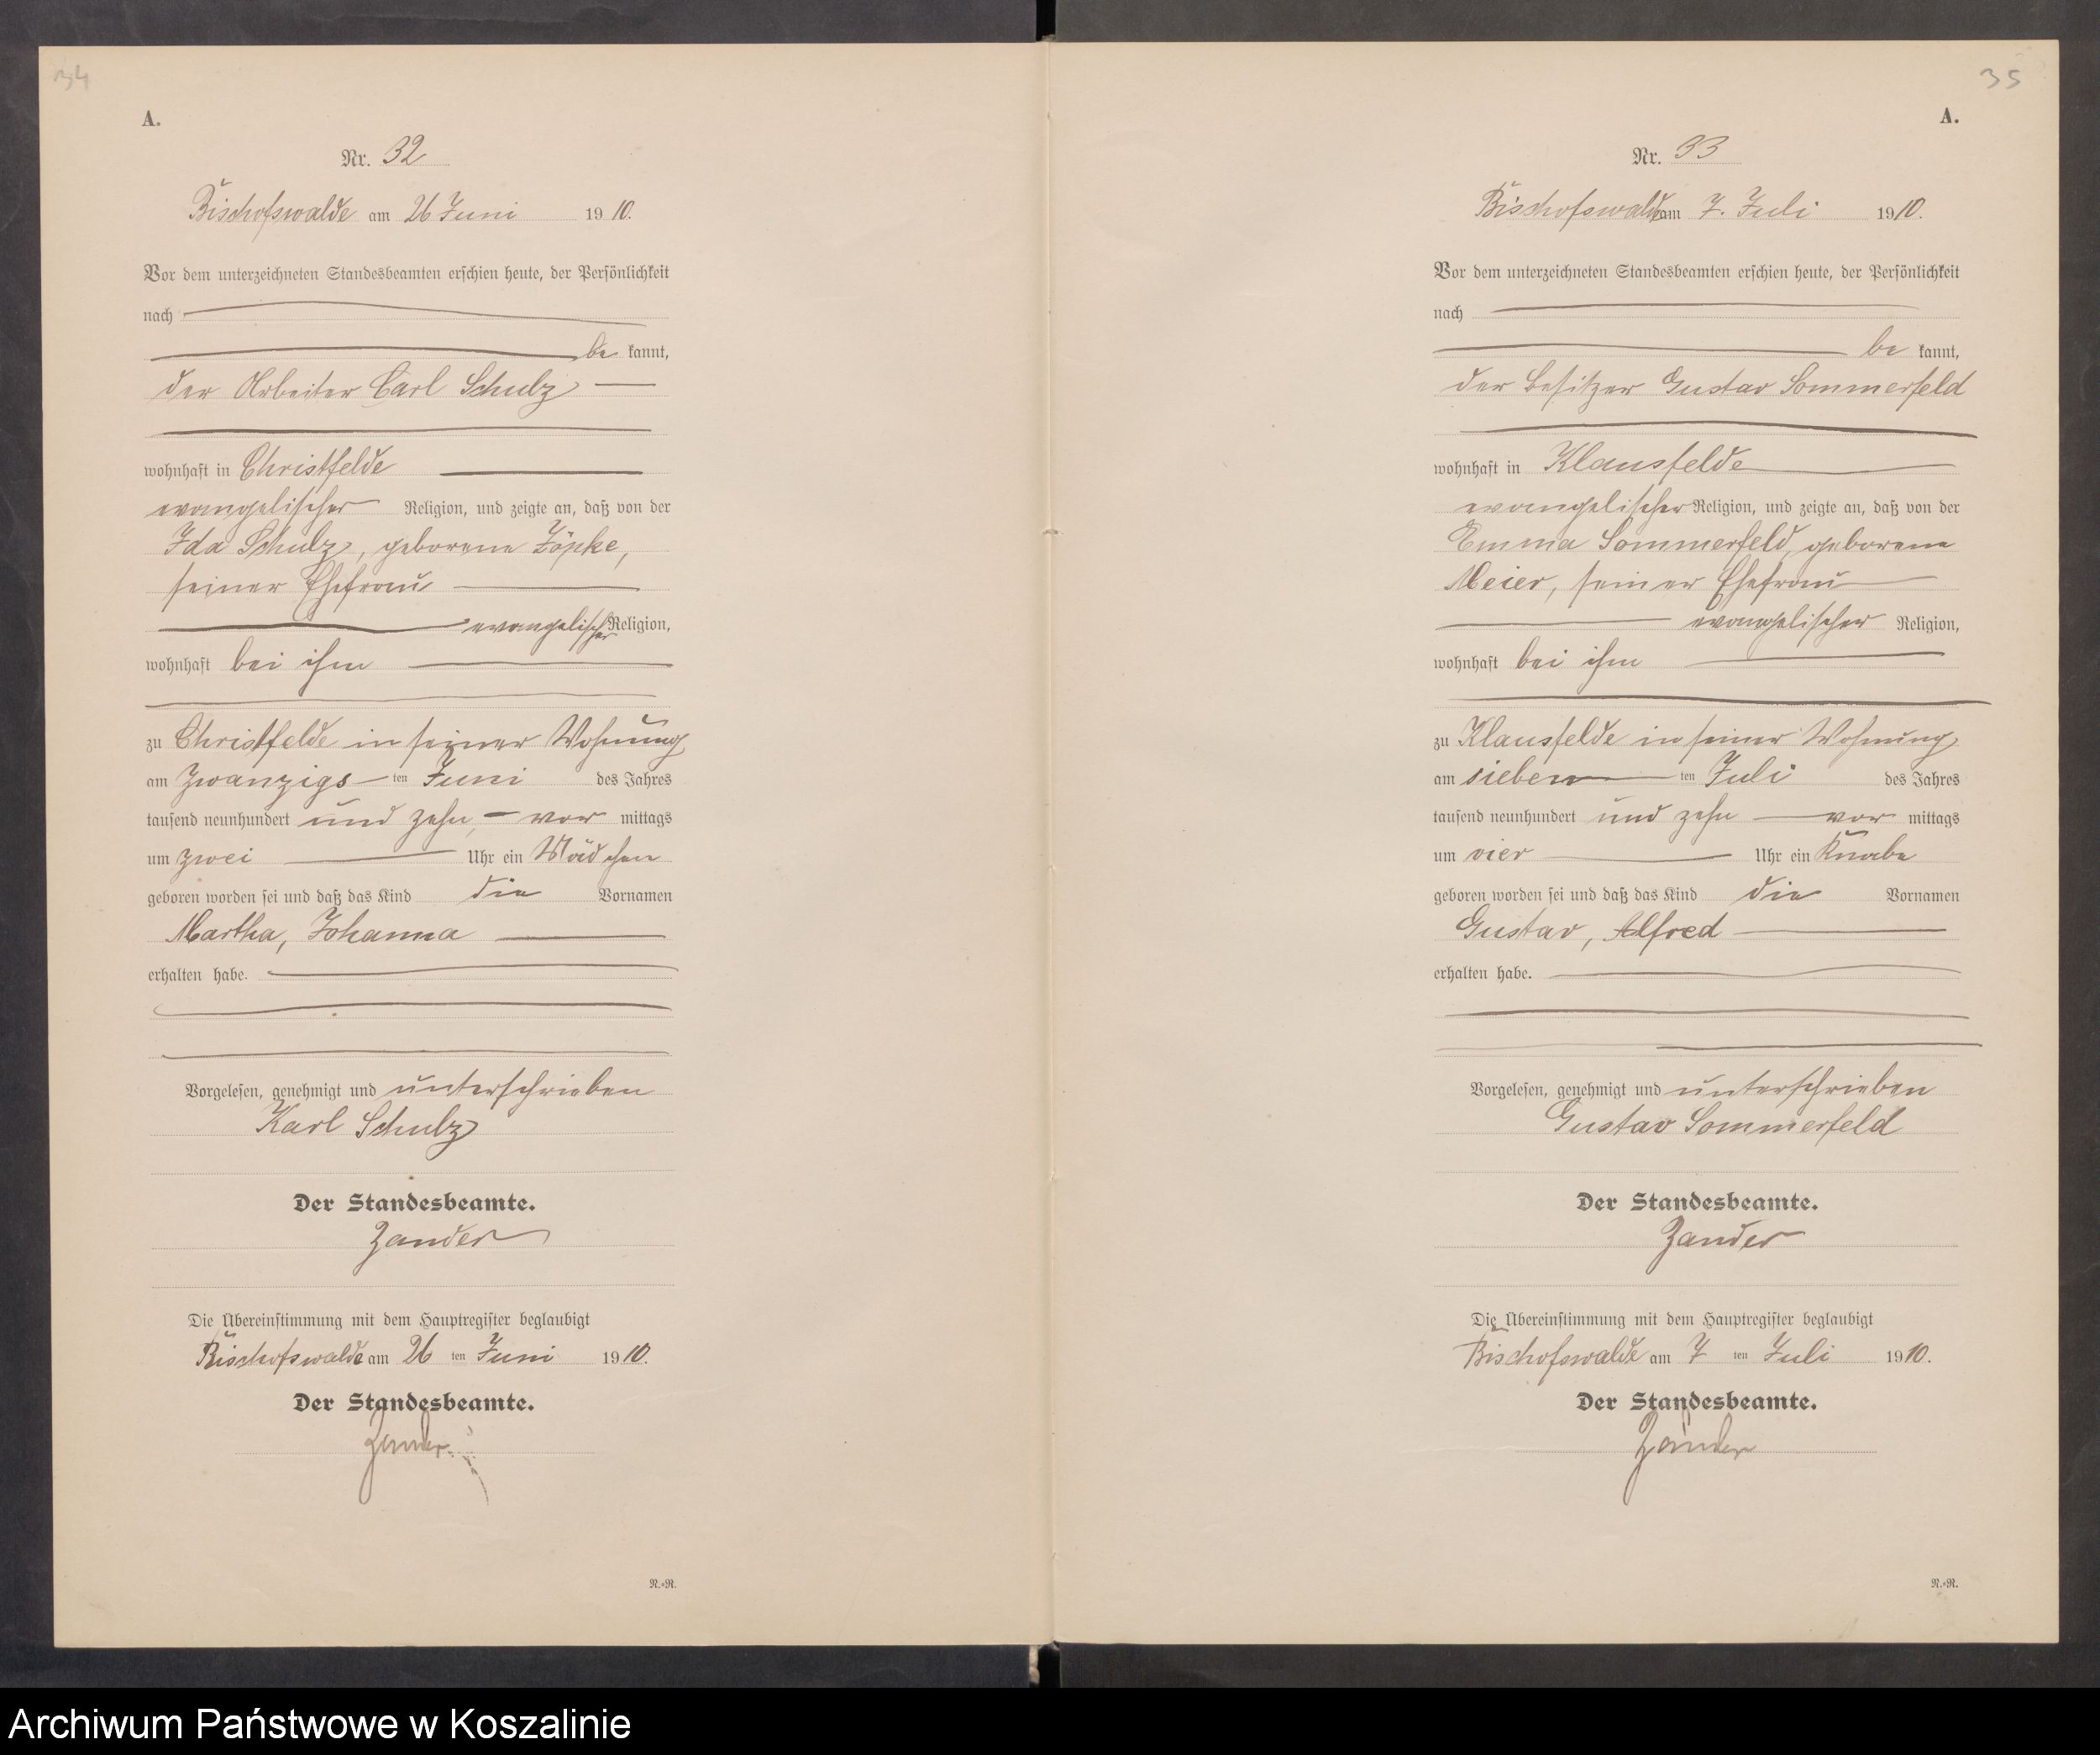 34
A.
Nr. 32
Bischofswalde am 26 Juni 1910.
Vor dem unterzeichneten Standesbeamten erschien heute, der Persönlichkeit
nach
be kannt,
der Arbeiter Carl Schulz
wohnhaft in Christfelde
evangelischer Religion, und zeigte an, daß von der
Ida Schulz, geborene Zöpke,
seiner Ehefrau
evangelischer Religion,
wohnhaft bei ihm
zu Christfelde in seiner Wohnung
am zwanzigs ten Juni des Jahres
tausend neunhundert und zehn, vor mittags
um zwei Uhr ein Mädchen
geboren worden sei und daß das Kind die Vornamen
Martha, Johanna
erhalten habe.
Vorgelesen, genehmigt und unterschrieben
Karl Schulz
Der Standesbeamte.
Zander
Die Übereinstimmung mit dem Hauptregister beglaubigt
Bischofswalde am 26 ten Juni 1910.
Der Standesbeamte.
Zander.
N.=N.
35
A.
Nr. 33
Bischofswalde am 7. Juli 1910.
Vor dem unterzeichneten Standesbeamten erschien heute, der Persönlichkeit
nach
be kannt,
der Besitzer Gustav Sommerfeld
wohnhaft in Klausfelde
evangelischer Religion, und zeigte an, daß von der
Emma Sommerfeld, geborene
Meier, seiner Ehefrau
evangelischer Religion,
wohnhaft bei ihm
zu Klausfelde in seiner Wohnung
am sieben ten Juli des Jahres
tausend neunhundert und zehn vor mittags
um vier Uhr ein Knabe
geboren worden sei und daß das Kind die Vornamen
Gustav, Alfred
erhalten habe.
Vorgelesen, genehmigt und unterschrieben
Gustav Sommerfeld
Der Standesbeamte.
Zander
Die Übereinstimmung mit dem Hauptregister beglaubigt
Bischofswalde am 7 ten Juli 1910.
Der Standesbeamte.
Zander
N.=N.
Archiwum Państwowe w Koszalinie